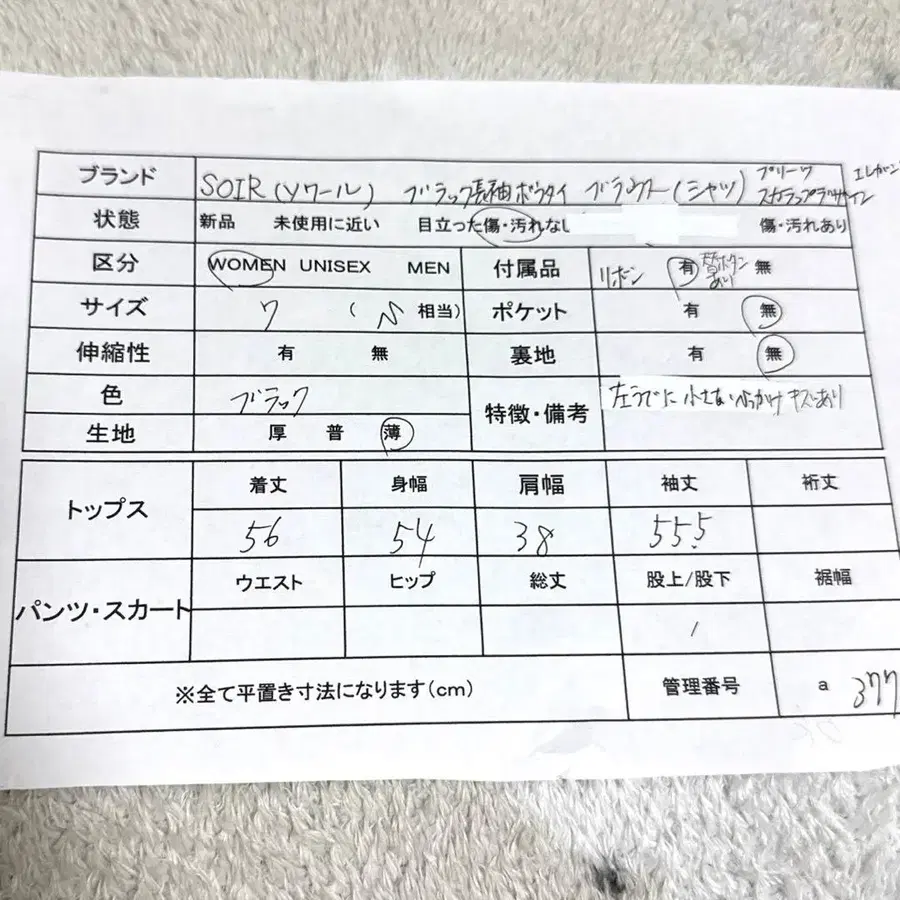 ブランド SOIR(Yワール) ブラック長袖ボウタイ ブラウス(シャツ) プリーツ エレガン
スカラップデザイン
状態 新品 未使用に近い 目立った傷・汚れなし 傷・汚れあり
区分 WOMEN UNISEX MEN 付属品 リボン 有 替ボタンあり 無
サイズ 7 ( 相当) ポケット 有 無
伸縮性 有 無 裏地 有 無
色 ブラック 特徴・備考 左うでに小さなひっかけキズあり
生地 厚 普 薄
トップス 着丈 身幅 肩幅 袖丈 裄丈
56 54 38 55.5
パンツ・スカート ウエスト ヒップ 総丈 股上/股下 裾幅
/
※全て平置き寸法になります(cm) 管理番号 a 377